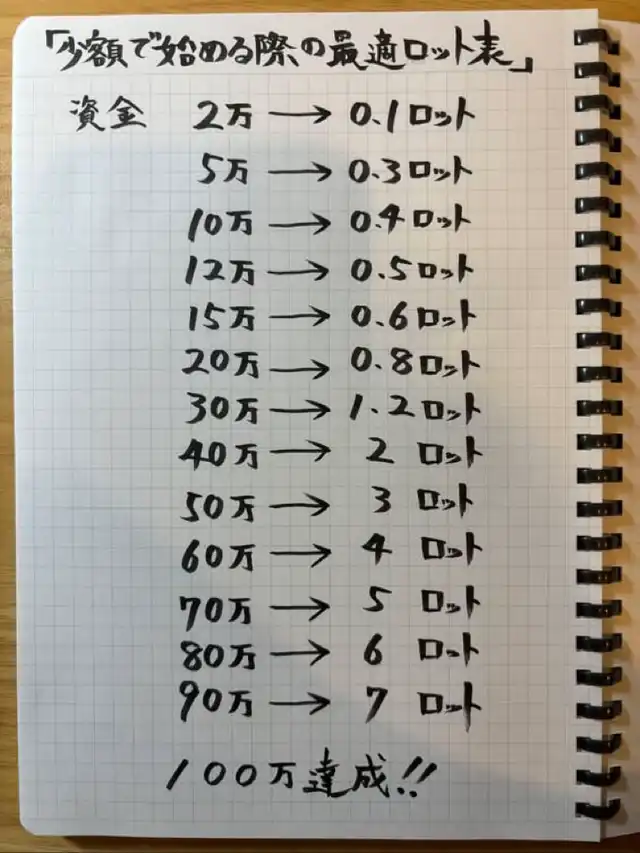 「少額で始める際の最適ロット表」
資金 2万 → 0.1ロット
5万 → 0.3ロット
10万 → 0.4ロット
12万 → 0.5ロット
15万 → 0.6ロット
20万 → 0.8ロット
30万 → 1.2ロット
40万 → 2 ロット
50万 → 3 ロット
60万 → 4 ロット
70万 → 5 ロット
80万 → 6 ロット
90万 → 7 ロット
100万達成!!